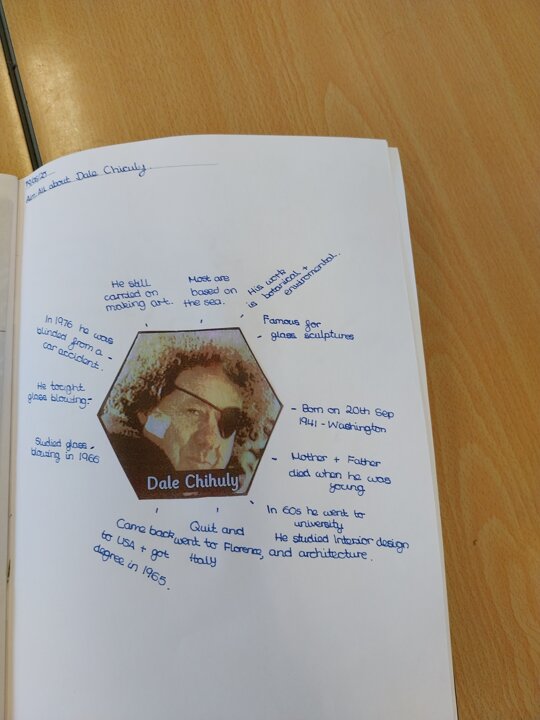 Aim: All about Dale Chiculy.
He still
carried on
making art.
Most are
based on
the sea.
His work
is botanical +
enviromental.
Famous for
- glass sculptures
- Born on 20th Sep
1941 - Washington
- Mother + Father
died when he was
young
In 60s he went to
university
He studied Interior design
and architecture.
Quit and
went to Florence,
Italy
Came back
to USA + got
degree in 1965.
Studied glass
blowing in 1966
He tought
glass blowing-
In 1976 he was
blinded from a
car accident.
Dale Chihuly